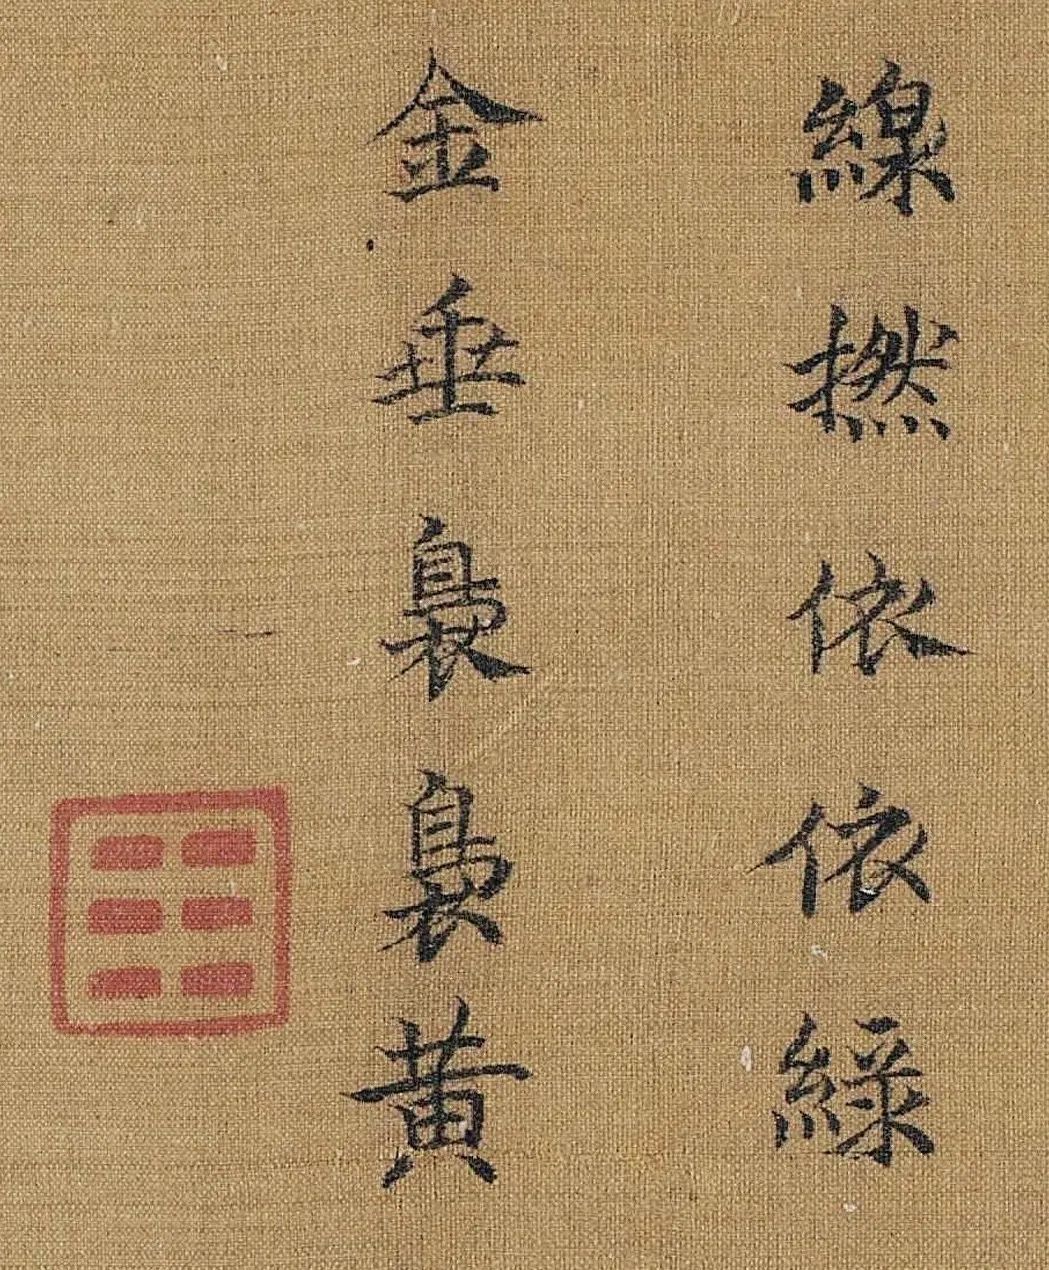 線撚依依綠
金垂裊裊黄